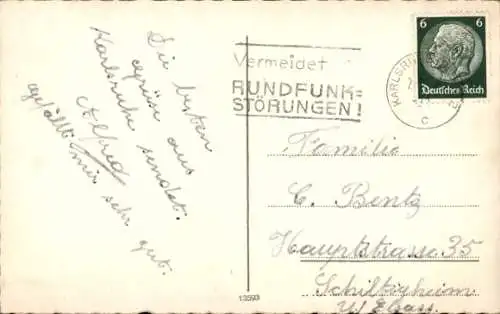 Die besten
Grüsse aus
Karlsruhe sendet.
Alfred
gefällt mir sehr gut.
Vermeidet
RUNDFUNK=
STÖRUNGEN!
KARLSRU
c
6 6
Deutsches Reich
Familie
C. Bentz
Hauptstrasse 35
Schiltigheim
U/Elsass.
13593